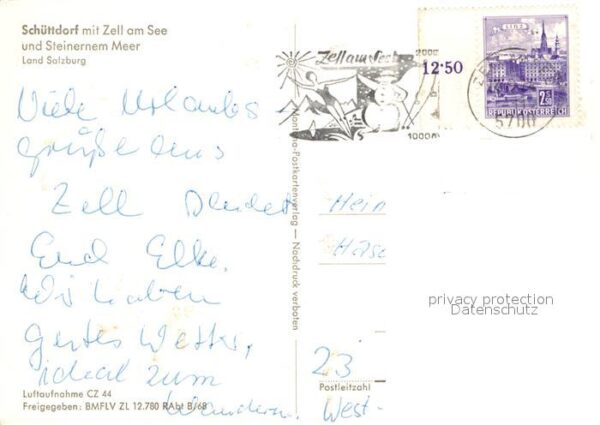 Schüttdorf mit Zell am See
und Steinernem Meer
Land Salzburg
Viele Urlaubs
grüße aus
Zell sendet
Euch Elke.
Wir haben
gutes Wetter,
ideal zum
Wandern.
Luftaufnahme CZ 44
Freigegeben: BMFLV ZL 12.780 RAbt B/68
Nachdruck verboten
Zell am See
2000
1000
12·50
LINZ
2.50
REPUBLIK ÖSTERREICH
5700
privacy protection
Datenschutz
23
Postleitzahl
West-